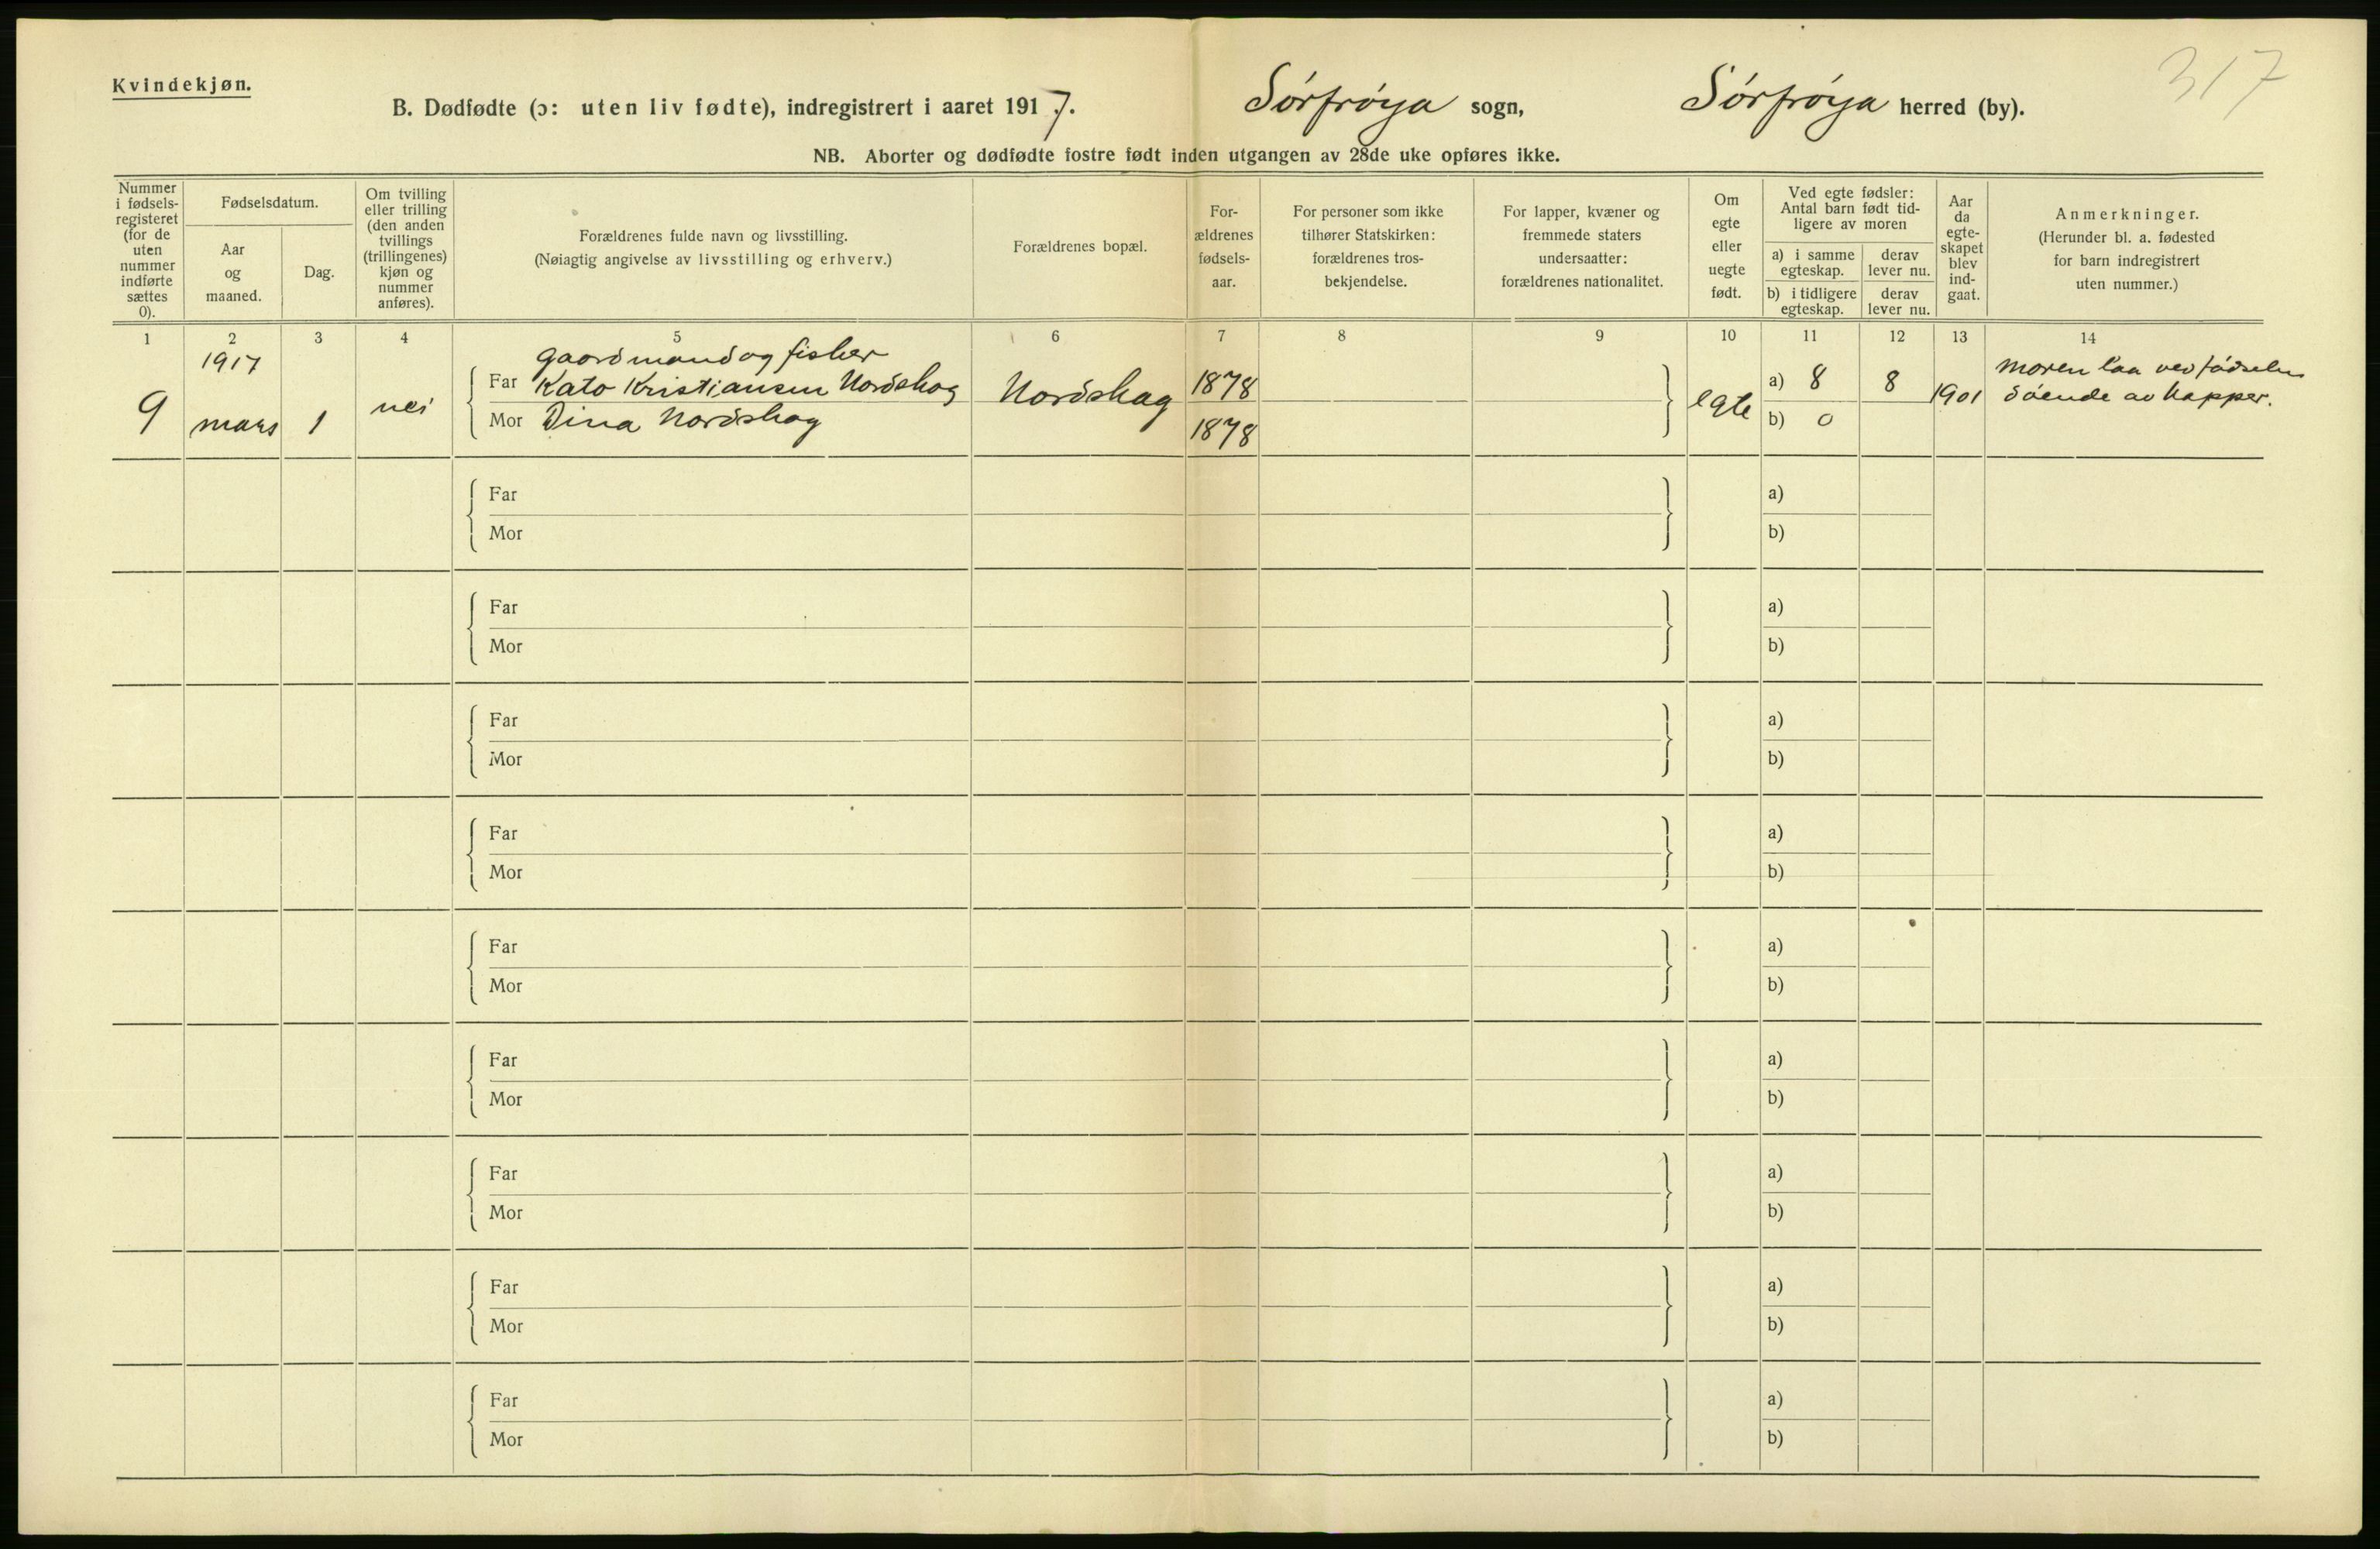 Kvindekjøn.
317
B. Dødfødte (ɔ: uten liv fødte), indregistrert i aaret 1917. Sørfrøya sogn, Sørfrøya herred (by).
NB. Aborter og dødfødte fostre født inden utgangen av 28de uke opføres ikke.
Nummer
i fødsels-
registeret
(for de
uten
nummer
indførte
sættes
0).
Fødselsdatum.
Aar
og
maaned.
Dag.
Om tvilling
eller trilling
(den anden
tvillings
(trillingenes)
kjøn og
nummer
anføres).
Forældrenes fulde navn og livsstilling.
(Nøiagtig angivelse av livsstilling og erhverv.)
Forældrenes bopæl.
For-
ældrenes
fødsels-
aar.
For personer som ikke
tilhører Statskirken:
forældrenes tros-
bekjendelse.
For lapper, kvæner og
fremmede staters
undersaatter:
forældrenes nationalitet.
Om
egte
eller
uegte
født.
Ved egte fødsler:
Antal barn født tid-
ligere av moren
a) i samme
egteskap.
derav
lever nu.
b) i tidligere
egteskap.
derav
lever nu.
Aar
da
egte-
skapet
blev
ind-
gaat.
Anmerkninger.
(Herunder bl. a. fødested
for barn indregistrert
uten nummer.)
1 2 3 4 5 6 7 8 9 10 11 12 13 14
9
1917
mars
1
nei
gaardmand og fisker
Far Kato Kristiansen Nordskag
Mor Dina Nordskag
Nordskag
1878
1878
egte
a) 8
8
b) 0
1901
Moren laa ved fødselen
døende av kopper.
Far
Mor
a)
b)
Far
Mor
a)
b)
Far
Mor
a)
b)
Far
Mor
a)
b)
Far
Mor
a)
b)
Far
Mor
a)
b)
Far
Mor
a)
b)
Far
Mor
a)
b)
Far
Mor
a)
b)